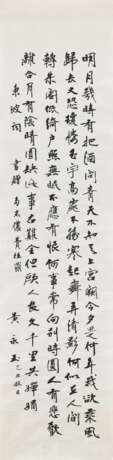 明月幾時有把酒問青天不知天上宮闕今夕是何年我欲乘風
歸去又恐瓊樓玉宇高處不勝寒起舞弄清影何似在人間
轉朱閣低綺戶照無眠不應有恨何事常向別時圓人有悲歡
離合月有陰晴圓缺此事古難全但願人長久千里共嬋娟
東坡詞 書贈 黃永玉